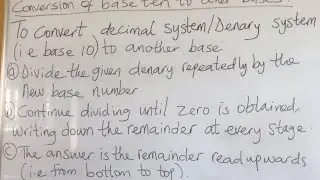 Conversion of base ten to other bases
To Convert decimal system/Denary system
(i.e base 10) to another base
ⓐ Divide the given denary repeatedly by the
New base number.
ⓑ Continue dividing until Zero is obtained,
writing down the remainder at every stage.
ⓒ The answer is the remainder read upwards
(i.e from bottom to top).